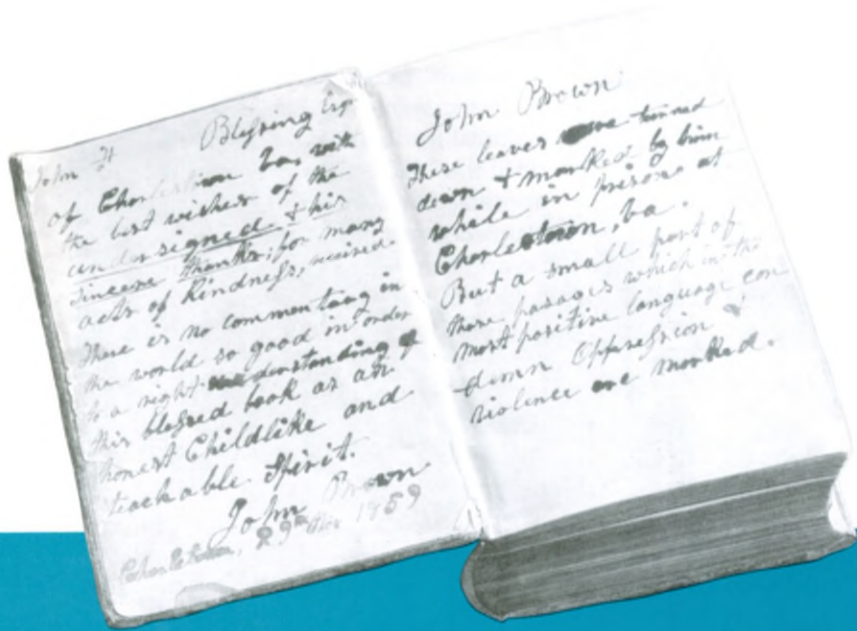 John F Blessing Esqr
of Charlestown Va, with
the best wishes of the
undersigned, & his
sincere thanks, for many
acts of kindness, received.
There is no commentary in
the world so good in order
to a right understanding of
this blessed book as an
honest Childlike and
teachable Spirit.
John Brown
Charlestown, 29th Nov 1859
John Brown
These leaves were turned
down & marked by him
while in prison at
Charlestown, Va.
But a small part of
those passages which in the
most positive language con
demn Oppression &
violence are marked.